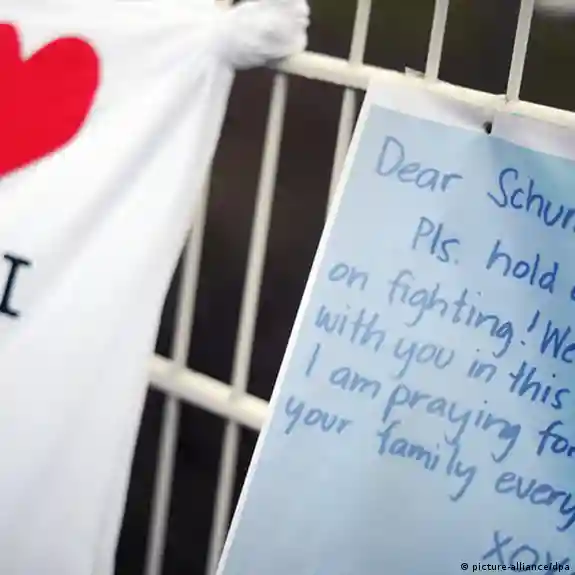 I
Dear Schum
Pls. hold
on fighting! We
with you in this
I am praying for
your family every
xox
© picture-alliance/dpa